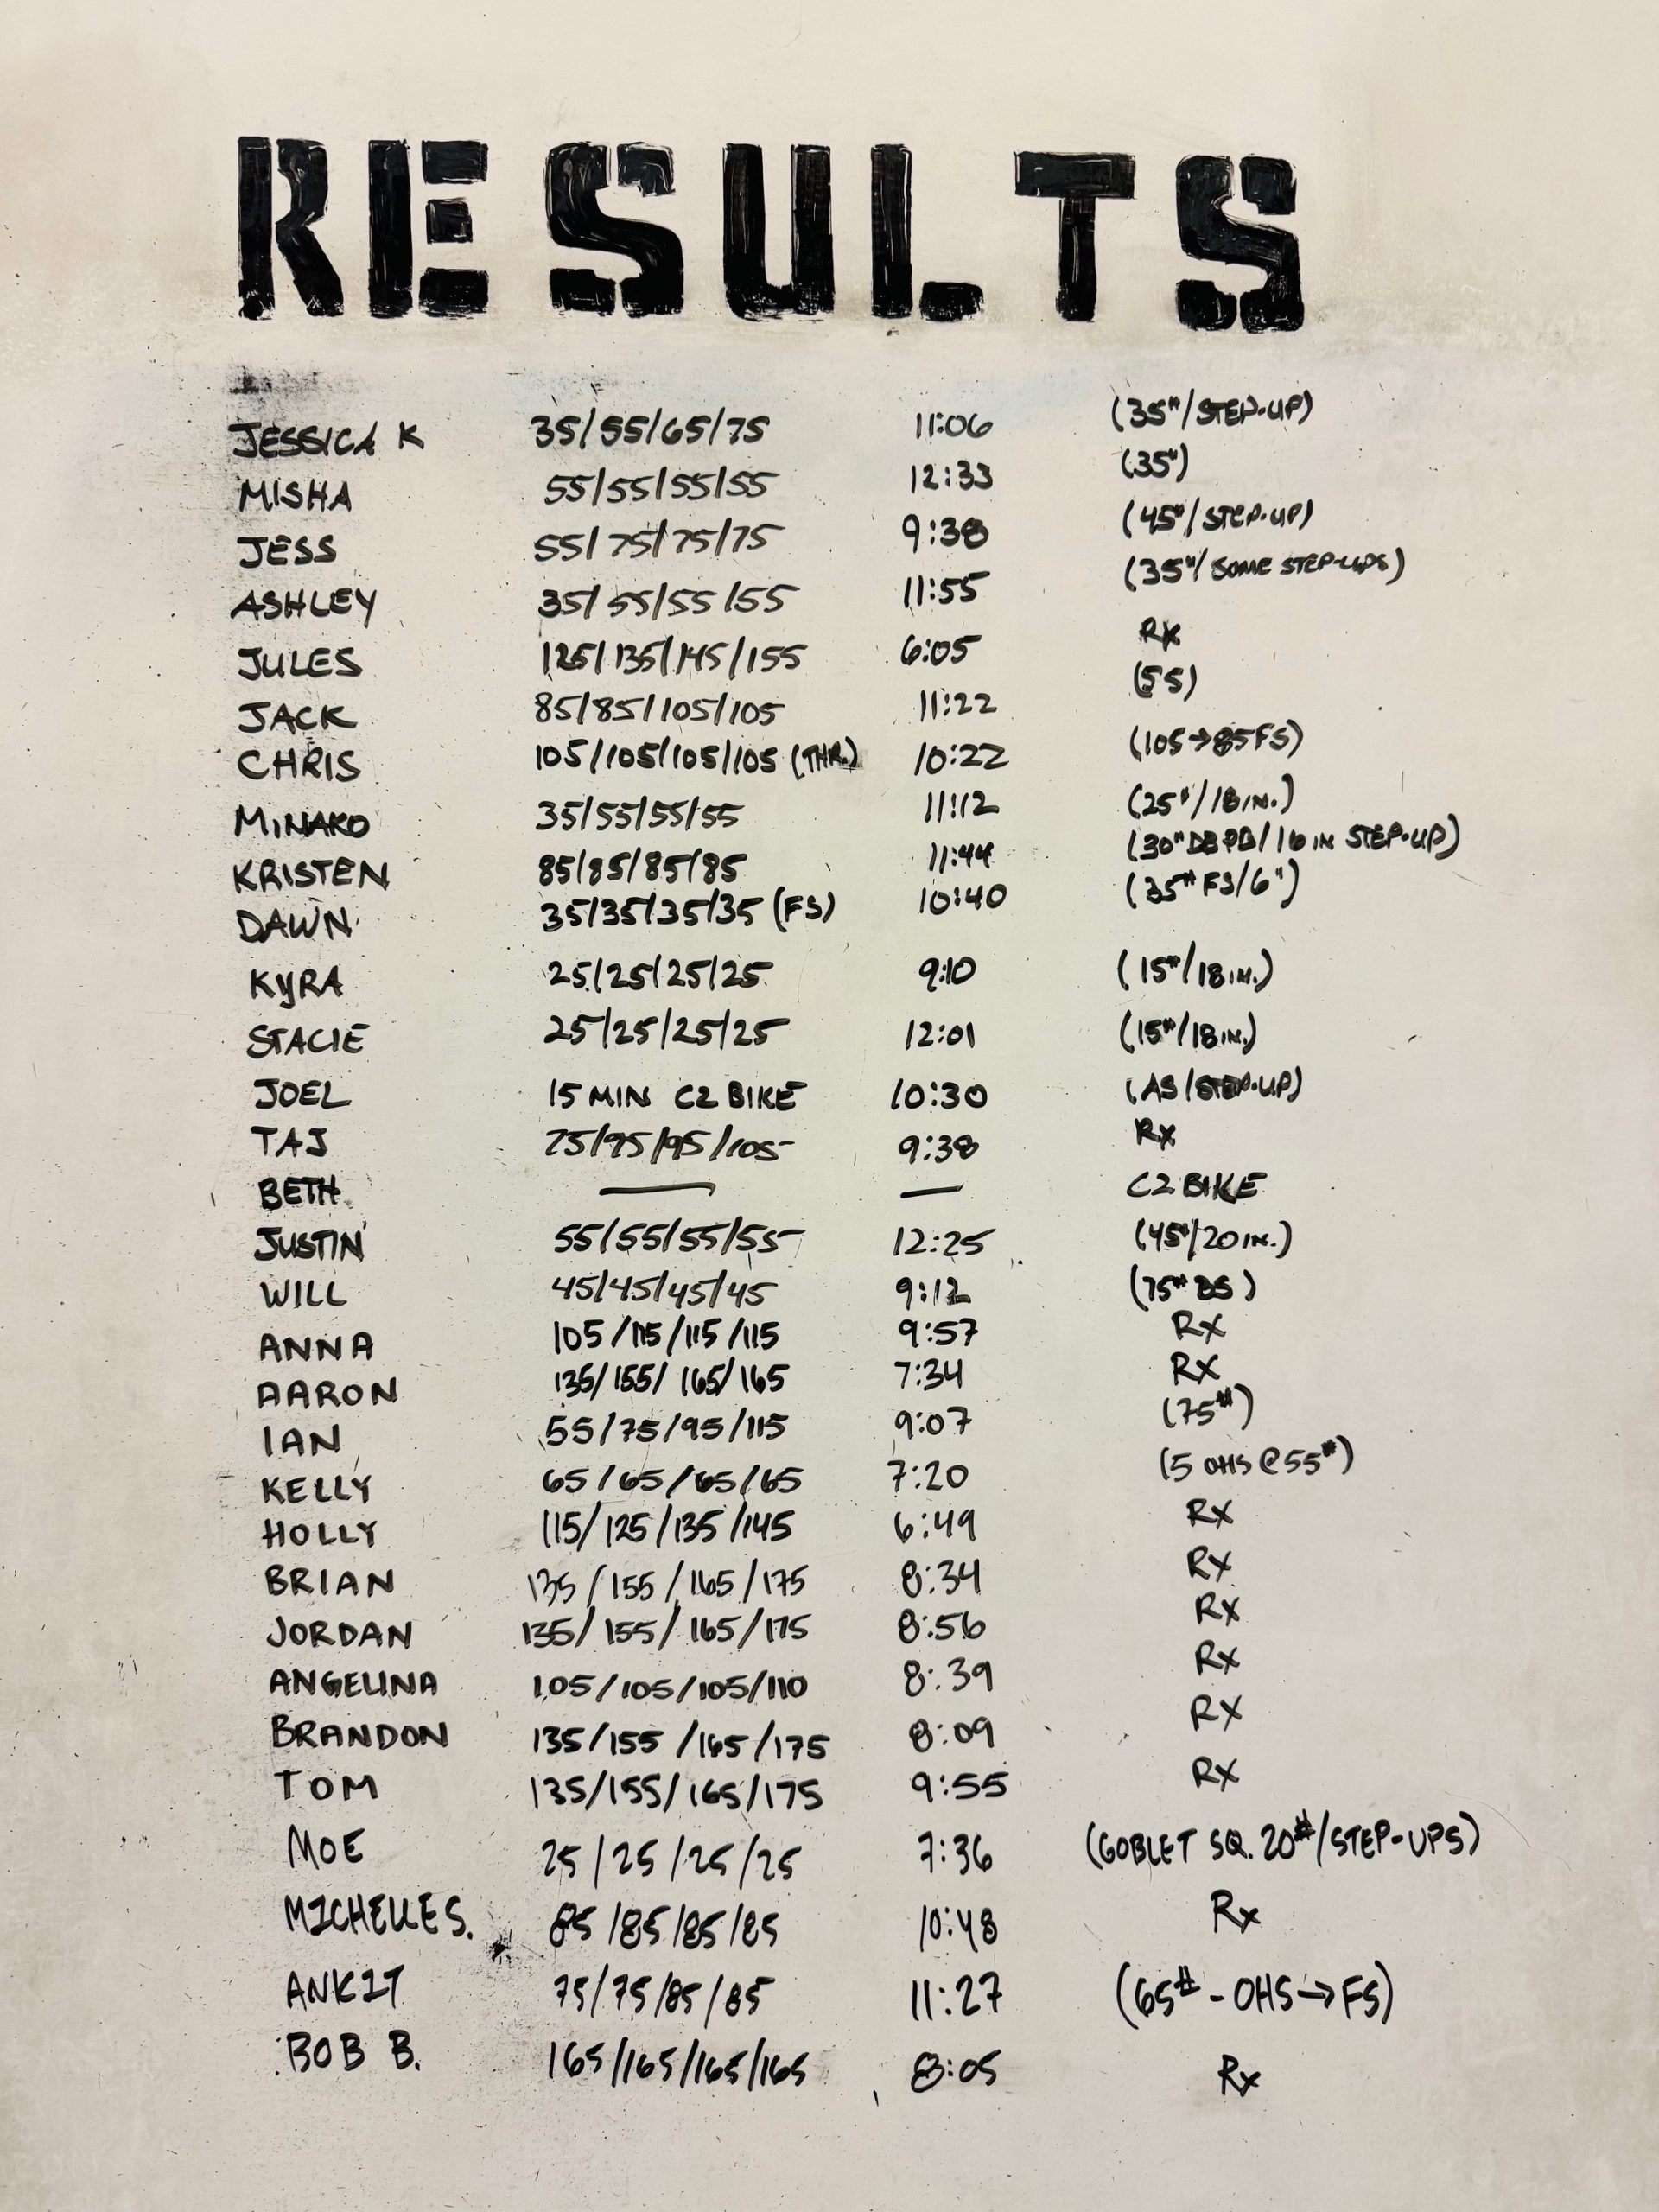 RESULTS
JESSICA K 35/55/65/75 11:06 (35#/STEP-UP)
MISHA 55/55/55/55 12:33 (35#)
JESS 55/75/75/75 9:38 (45#/STEP-UP)
ASHLEY 35/55/55/55 11:55 (35#/SOME STEP-UPS)
JULES 125/135/145/155 6:05 Rx
JACK 85/85/105/105 11:22 (55)
CHRIS 105/105/105/105 (THR.) 10:22 (105→85FS)
MINAKO 35/55/55/55 11:12 (25#/18IN.)
KRISTEN 85/85/85/85 11:44 (30# DB PD/16 IN STEP-UP)
DAWN 35/35/35/35 (FS) 10:40 (35# FS/6")
KYRA 25/25/25/25 9:10 (15#/18IN.)
STACIE 25/25/25/25 12:01 (15#/18IN.)
JOEL 15 MIN C2 BIKE 10:30 (AS/STEP-UP)
TAJ 75/95/95/105 9:38 Rx
BETH — — C2 BIKE
JUSTIN 55/55/55/55 12:25 (45#/20IN.)
WILL 45/45/45/45 9:12 (75# BS)
ANNA 105/115/115/115 9:57 Rx
AARON 135/155/165/165 7:34 Rx
IAN 55/75/95/115 9:07 (75#)
KELLY 65/65/65/65 7:20 (5 OHS @ 55#)
HOLLY 115/125/135/145 6:49 Rx
BRIAN 135/155/165/175 8:34 Rx
JORDAN 135/155/165/175 8:56 Rx
ANGELINA 105/105/105/110 8:39 Rx
BRANDON 135/155/165/175 8:09 Rx
TOM 135/155/165/175 9:55 Rx
MOE 25/25/25/25 7:36 (GOBLET SQ. 20#/STEP-UPS)
MICHELLE S. 85/85/85/85 10:48 Rx
ANKIT 75/75/85/85 11:27 (65# - OHS→FS)
BOB B. 165/165/165/165 8:05 Rx